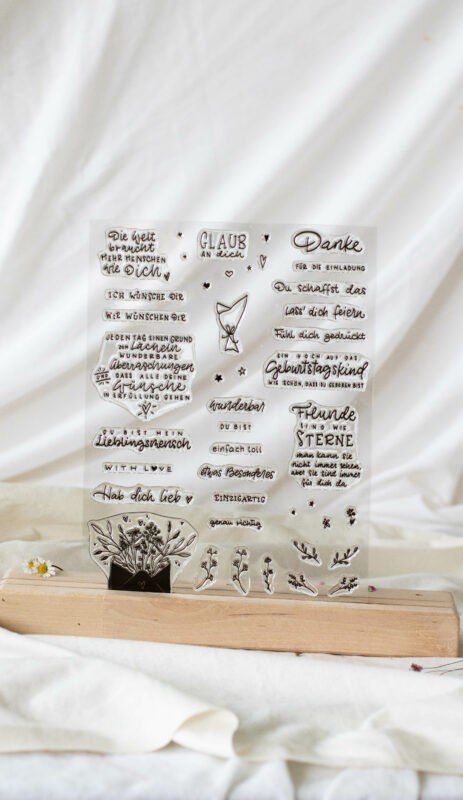 Die Welt
braucht
MEHR MENSCHEN
wie Dich
ICH WÜNSCHE DIR
WIR WÜNSCHEN DIR
JEDEN TAG EINEN GRUND
ZUM Lächeln
WUNDERBARE
Überraschungen
UND DASS ALLE DEINE
Wünsche
IN ERFÜLLUNG GEHEN
DU BIST MEIN
Lieblingsmensch
WITH LOVE
Hab dich lieb
GLAUB
AN dich
wunderbar
DU BIST
einfach toll
etwas Besonderes
EINZIGARTIG
genau richtig
Danke
FÜR DIE EINLADUNG
Du schaffst das
Lass' dich feiern
Fühl dich gedrückt
EIN HOCH AUF DAS
Geburtstagskind
WIE SCHÖN, DASS DU GEBOREN BIST
Freunde
SIND WIE
STERNE
man kann sie
nicht immer sehen,
aber sie sind immer
für dich da